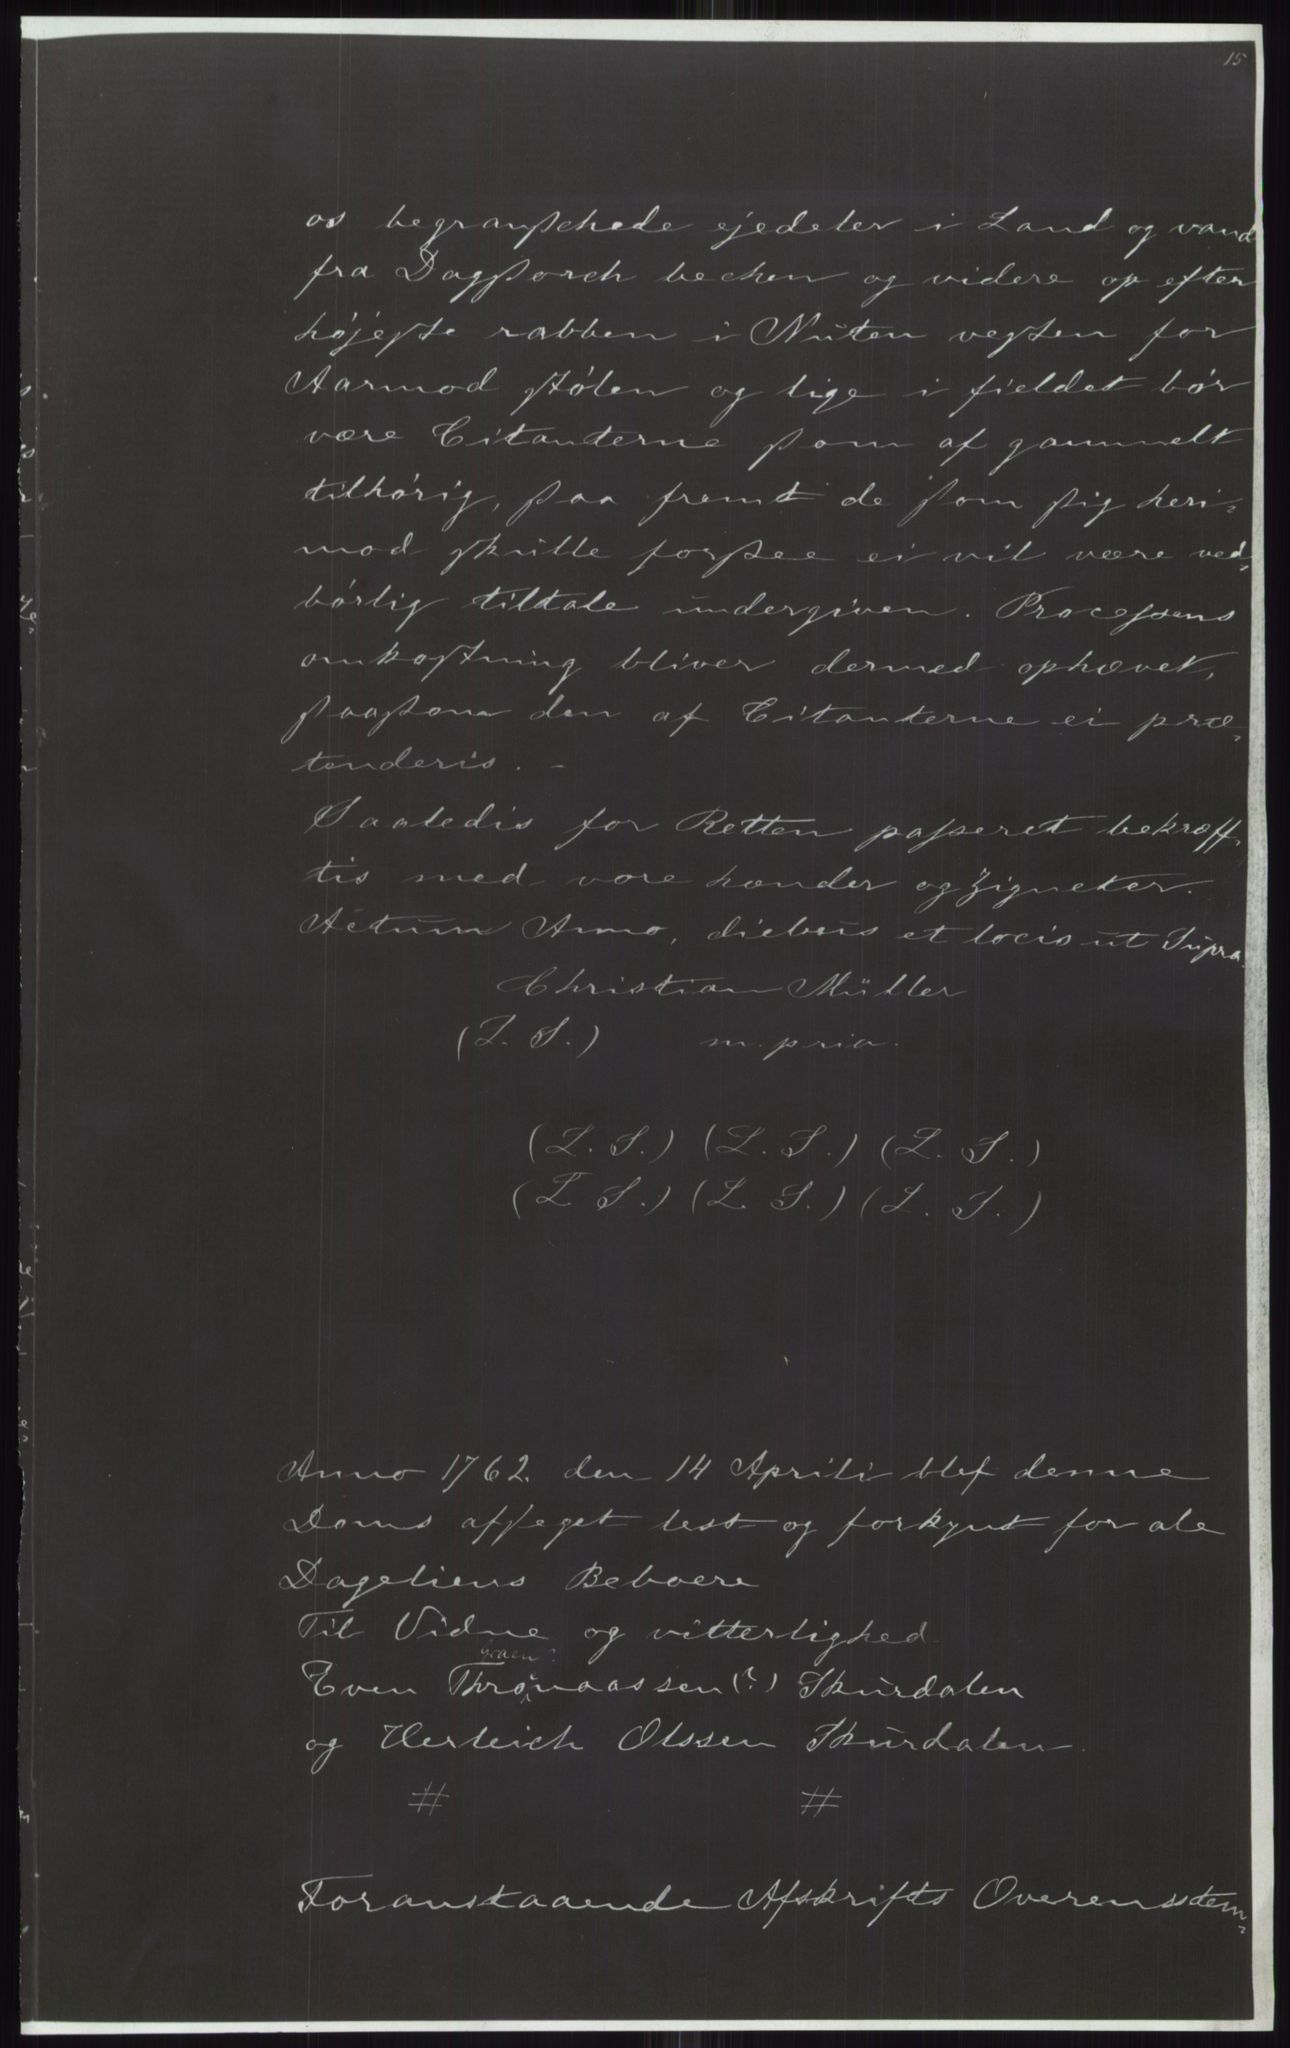 15
os begranschede ejedeler i Land og vand
fra Dagsorch bechen og videre op efter
højeste rabben i Nuten vesten for
Aarmod stølen og lige i fieldet bør
være Citanterne som af gammelt
tilhørig, saa fremt de som sig heri-
mod skulle forsee ei vil være ved-
børlig tiltale undergiven. Processens
omkostning bliver dermed ophævet,
saasom den af Citanterne ei præ-
tenderis. -
Saaledis for Retten passeret bekræff-
tis med vore hænder og Zigneter.
Actum Anno, diebus et locis ut Supra.
Christian Müller
(L. S.) m. pria.
(L. S.) (L. S.) (L. S.)
(L S.) (L. S.) (L. S.)
Anno 1762 den 14 Aprili blef denne
Doms afseget lest og forkynt for ale
Dageliens Beboere
Til Vidne og vitterlighed
Even Thronaassen (?) Skurdalen
og Herleich Olssen Skurdalen.
# #
Foranstaaende Afskrifts Overensstem-